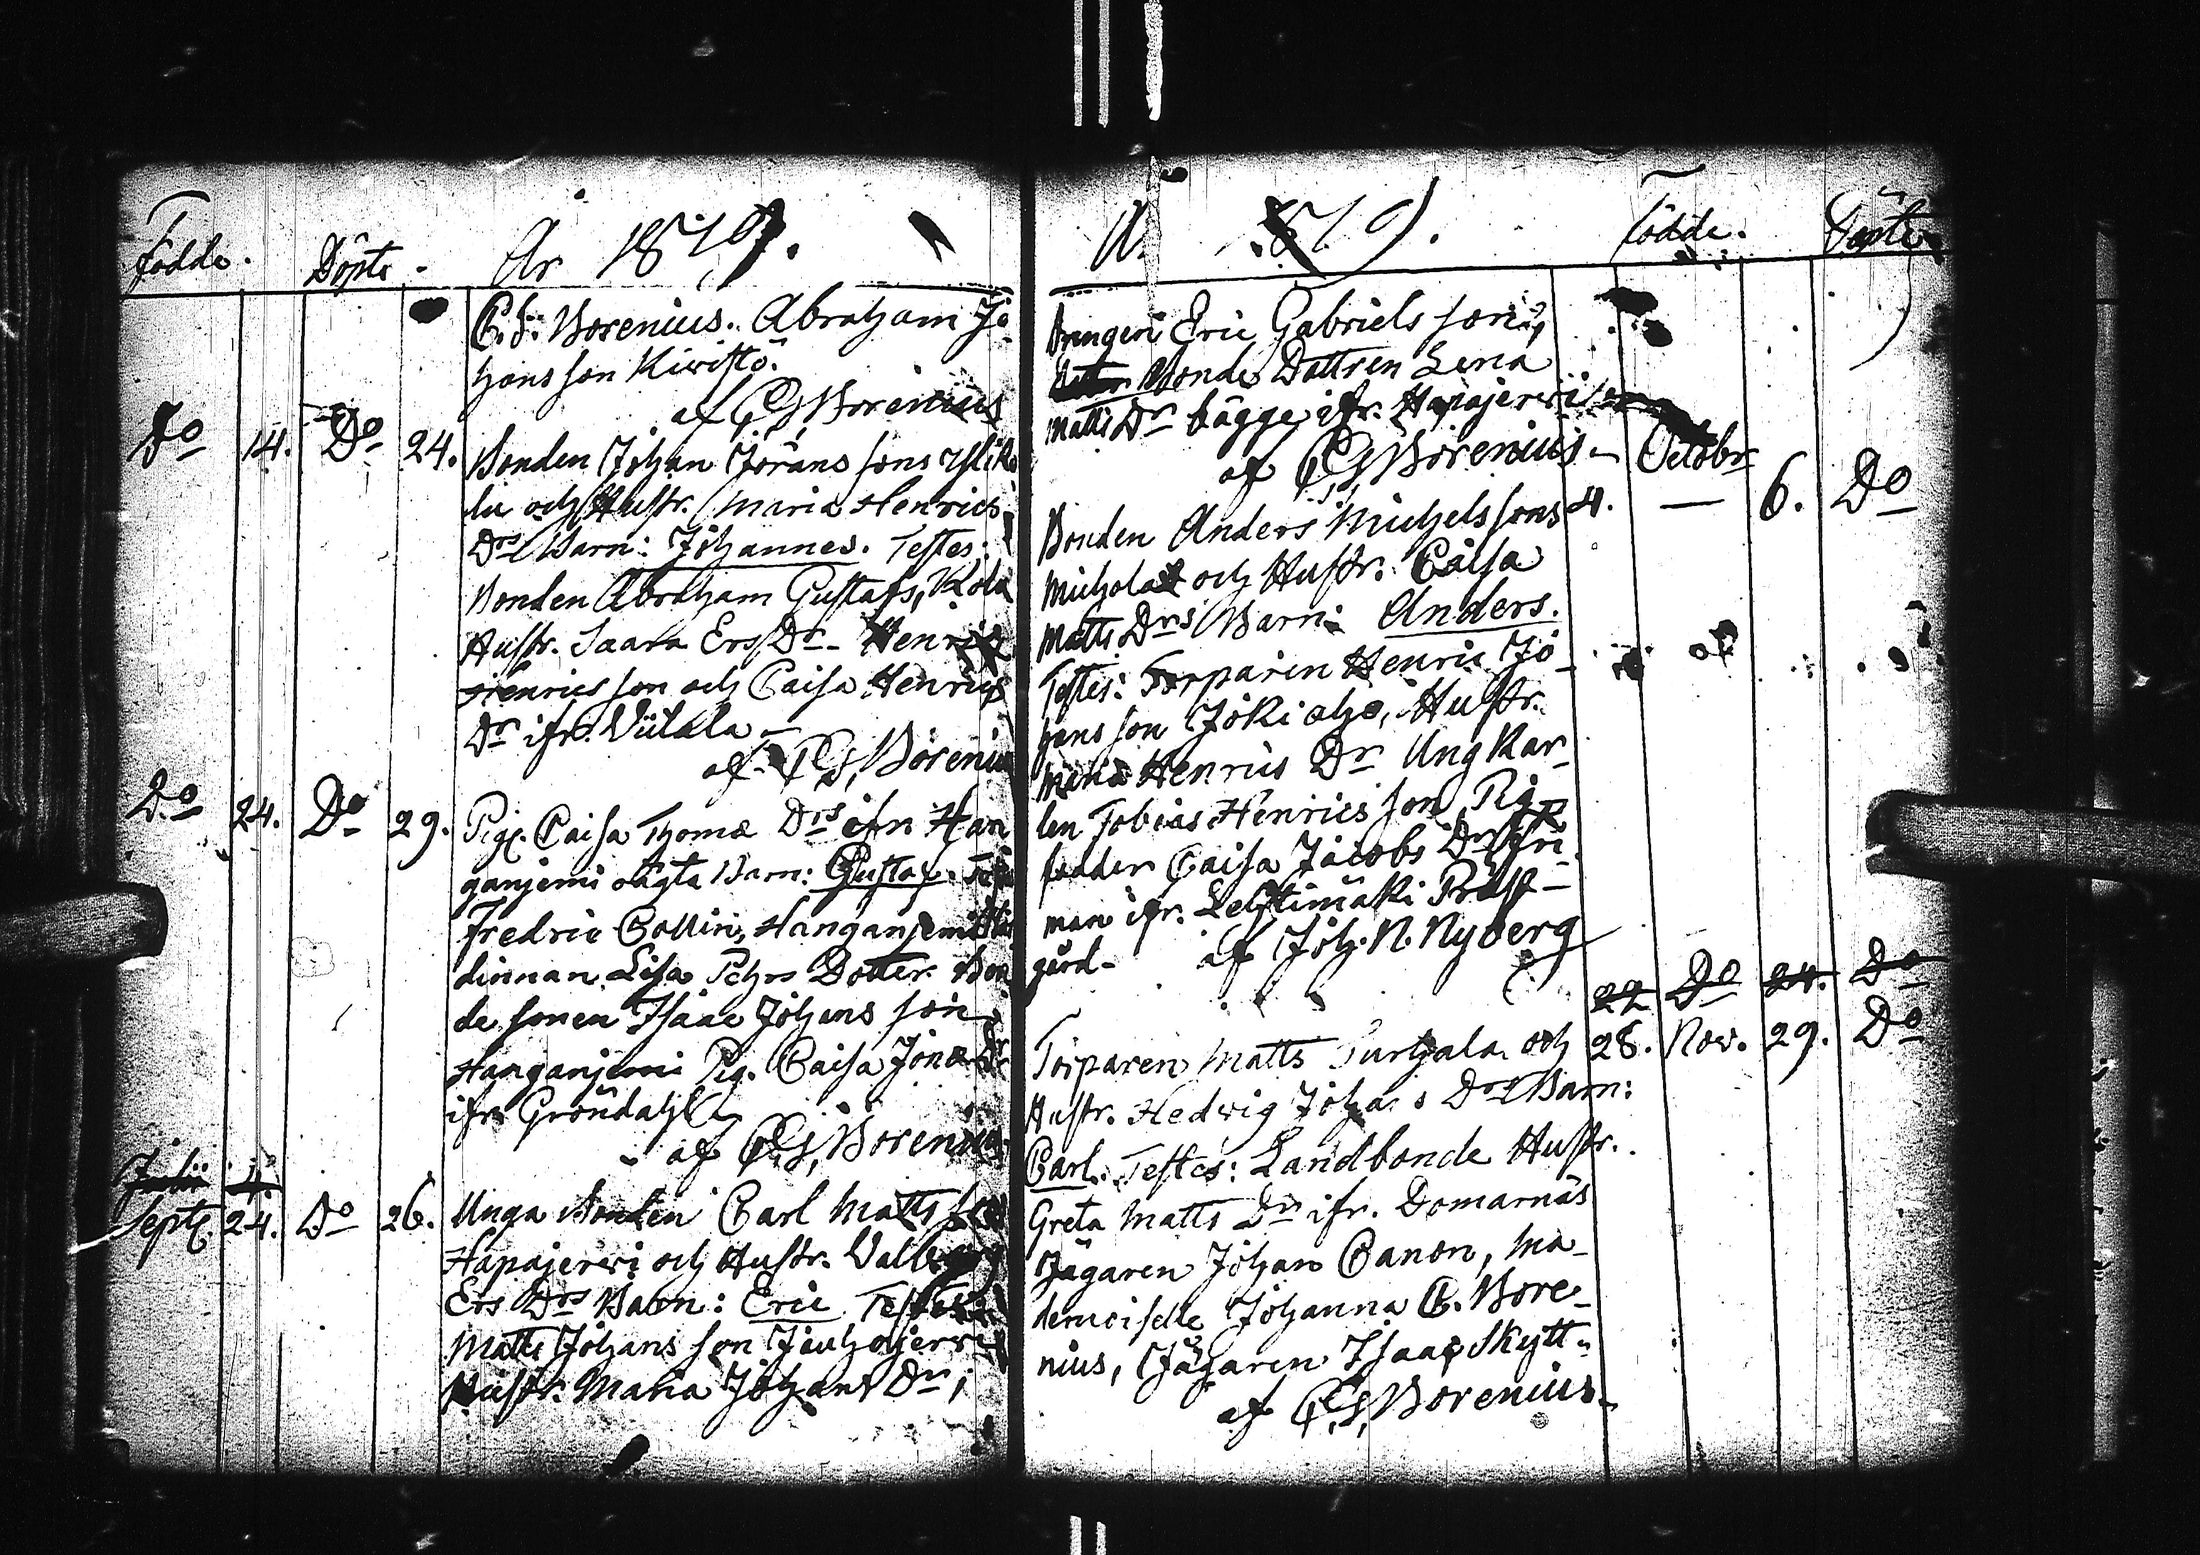 Födde. Döpte. År 1819.
C. G. Borenius. Abraham Jo-
hans son Kiwistö.
af C G Borenius
Do 14. Do 24. Bonden Johan Jörans sons Ylike
lu och Hustr. Maria Henrics
Drs Barn: Johannes. Testes:
Bonden Abraham Gustafs, Kola
Hustr. Saara Ers Dr - Henric
Henrics son och Caisa Henrics
Dr ifr. Viitala -
af C G Borenius
Do 24. Do 29. Pig. Caisa Thomæ Drs ifrn Han
ganjemi oägta Barn: Gustaf. Test
Fredric Collin, Hanganjemi
dinnan Lisa Pehrs Dotter Bon
de sonen Isaac Johans son
Hanganjemi Pig. Caisa Jonæ Dr
ifr. Gröndahl
af C G Borenius
Julii 4.
Sept. 24. Do 26. Unga Bonden Carl Matts son
Hapajerwi och Hustr. Valborg
Ers Drs Barn: Eric Testes:
Matts Johans son Jouhojerwi
Hustr. Maria Johans Dr;
A. 1819. Födde. Döpte.
Drengen Eric Gabriels son,
Bonde Dottren Lena
Matts Dr bägge ifr. Hapajerwi
af C G Borenius - Octobr
Bonden Anders Michels sons 4. — 6. Do
Michola och Hustr. Caisa
Matts Drs Barn: Anders.
Testes: Torparen Henric Jo-
hans son Jokialho, Hustr.
Maria Henrics Dr Ung Kar-
len Tobias Henrics son Pig
Caisa Jacobs Dr
man ifr. Lehtimäki Präst-
gård - af Joh. N. Nyberg
22 Do 24. Do
Torparen Matts Turhala och 28. Nov. 29. Do
Hustr. Hedwig Johans Drs Barn:
Carl. Testes: Landbonde Hustr.
Greta Matts Dr ifr. Domarnäs
Jägaren Johan Canon, Ma-
demoiselle Johanna C. Bore-
nius, Jägaren Isaac Skytt -
af C G Borenius -